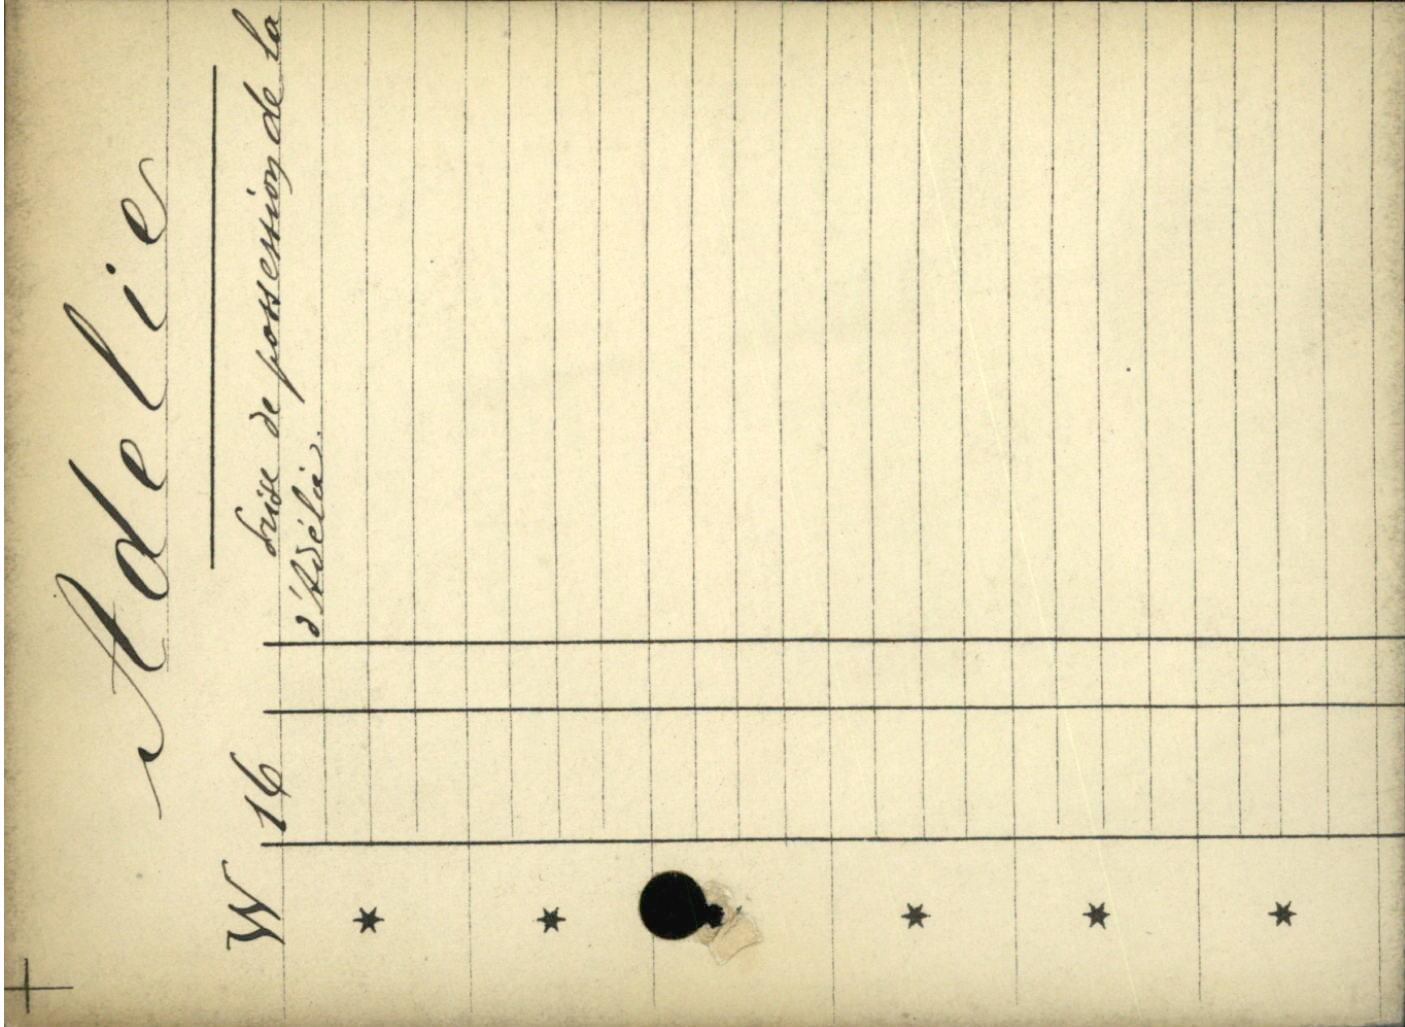 Adelie
W 16 Prise de possession de la
d'Adélie.